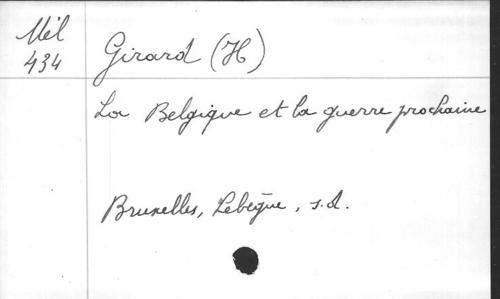 Mél
434
Girard (H)
La Belgique et la guerre prochaine
Bruxelles, Lebègue, s.d.